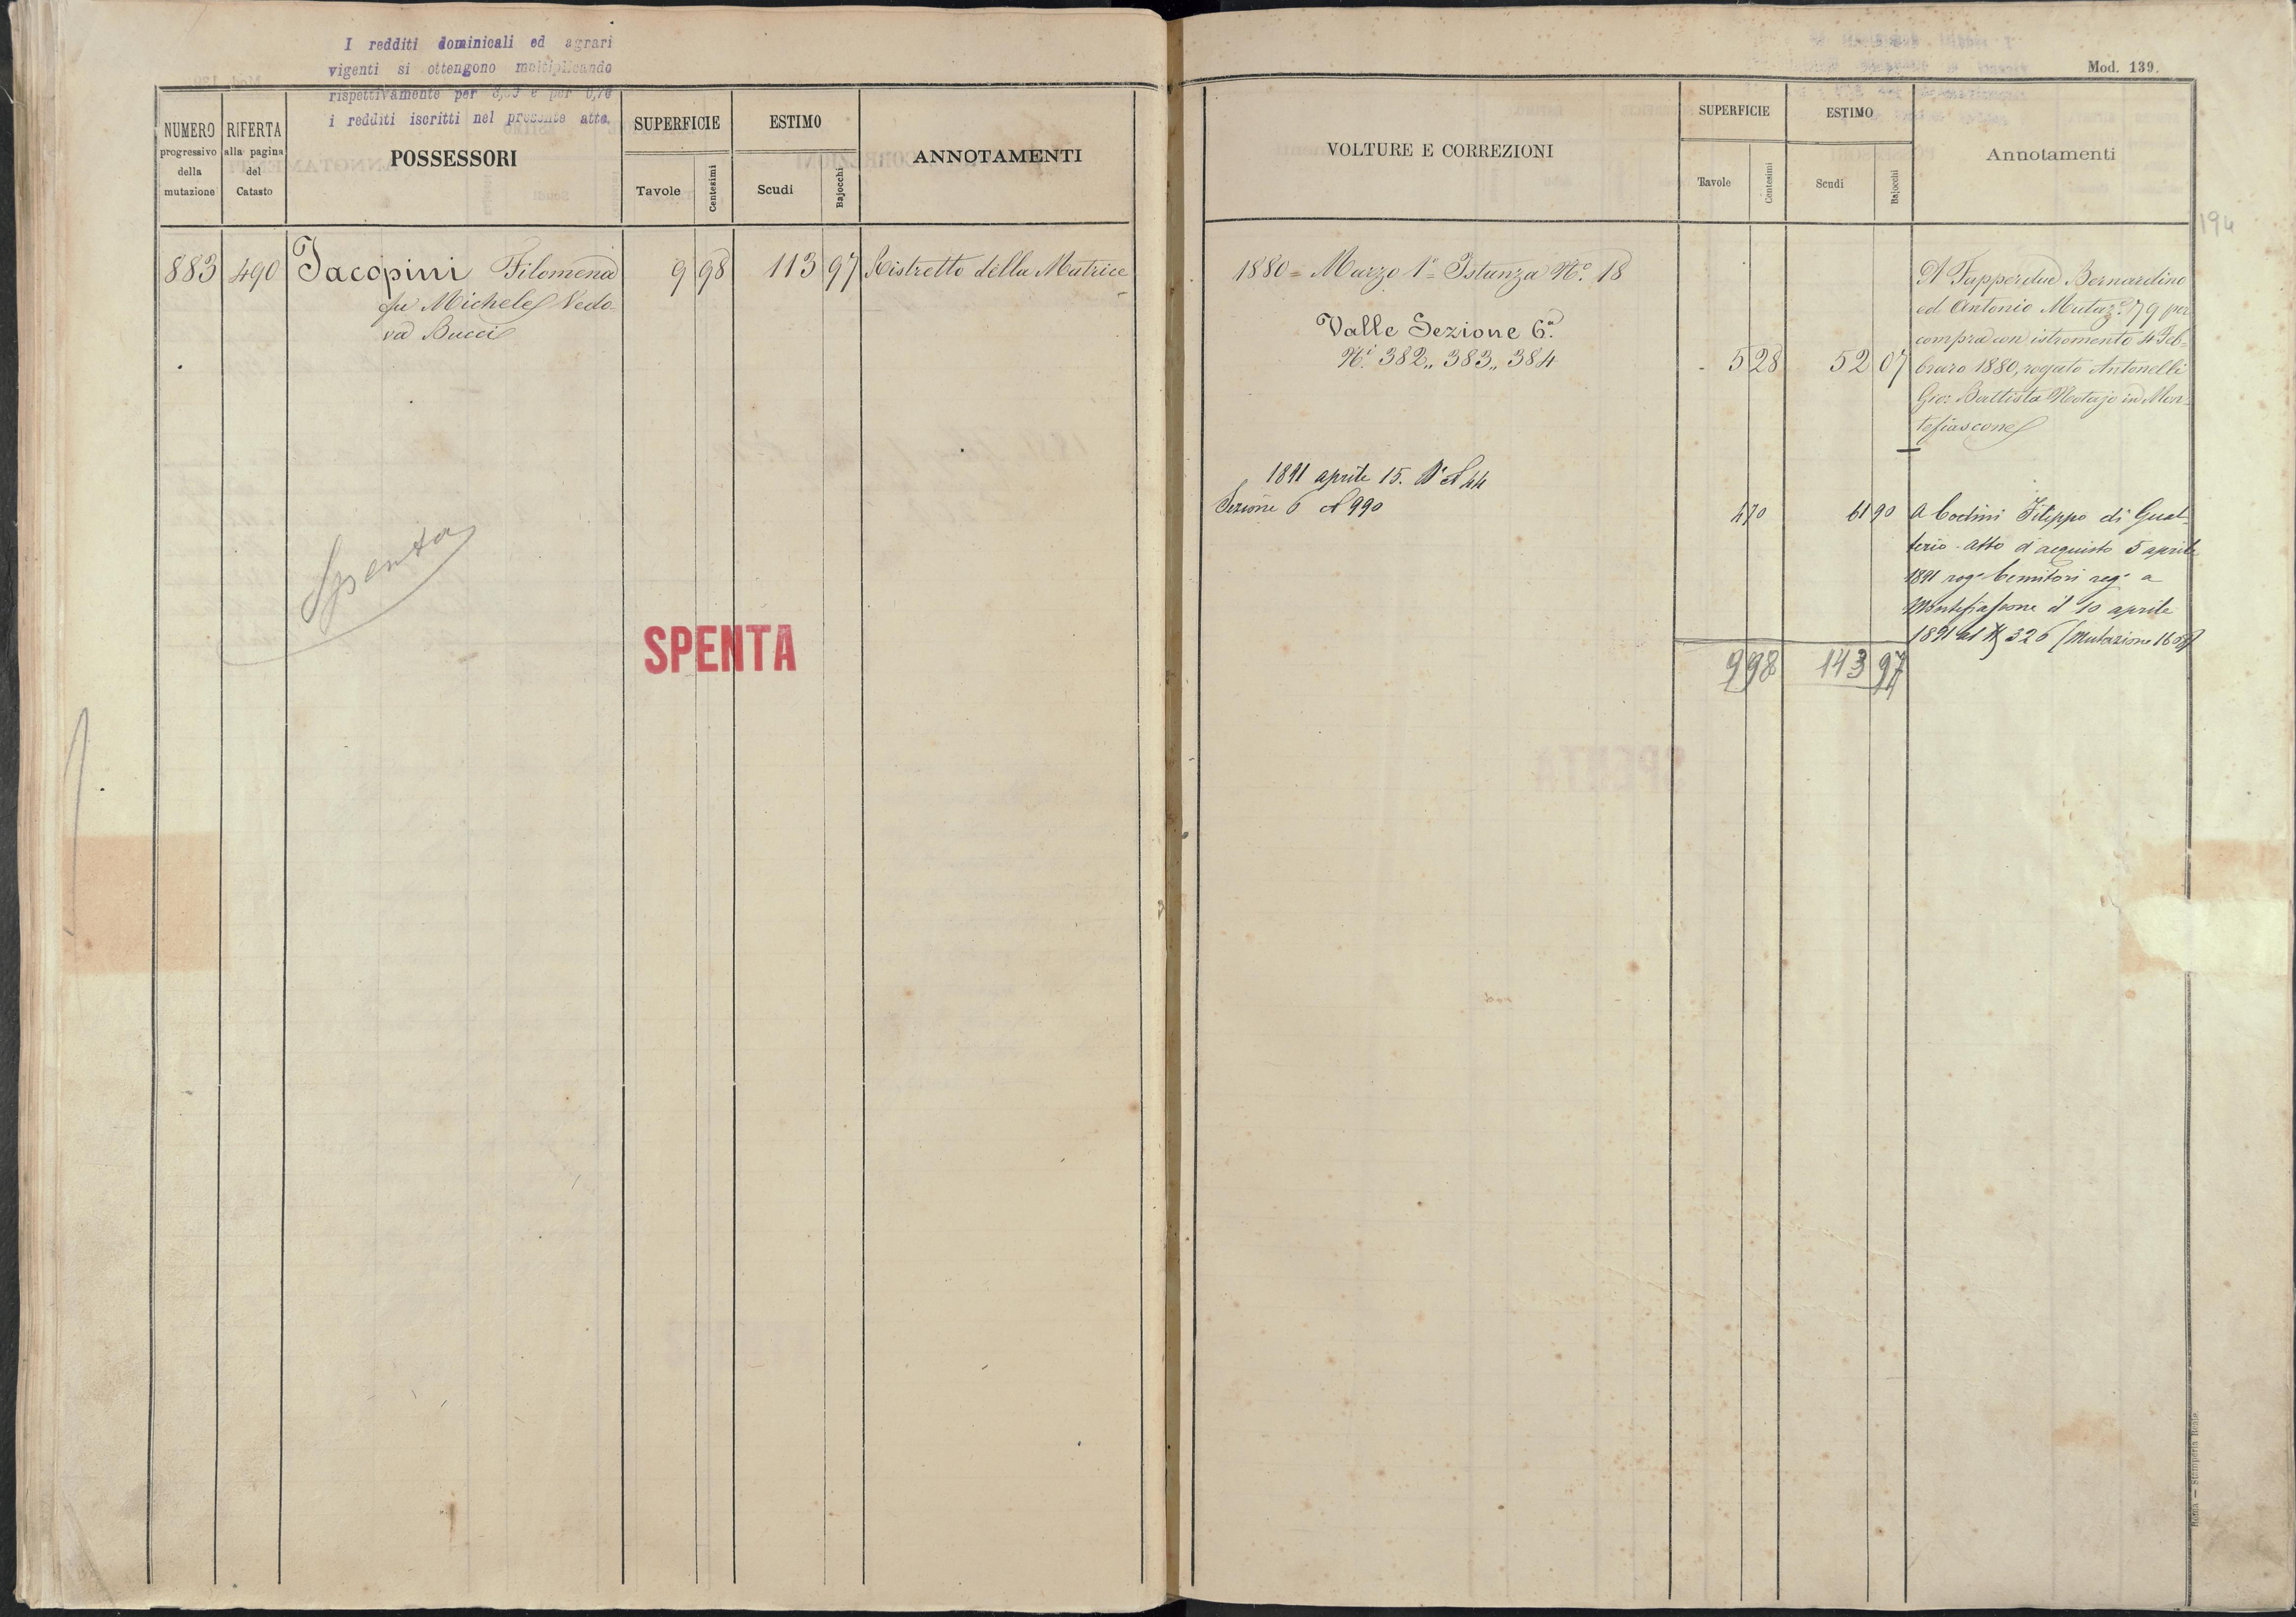 I redditi dominicali ed agrari
vigenti si ottengono moltiplicando
rispettivamente per e per 0,70
i redditi iscritti nel presente atto.
NUMERO
progressivo
della
mutazione
RIFERTA
alla pagina
del
Catasto
POSSESSORI
SUPERFICIE
Tavole
Centesimi
ESTIMO
Scudi
Bajocchi
ANNOTAMENTI
883 490 Jacopini Filomena 9 98 113 97 Ristretto della Matrice
fu Michele Vedo-
va Bucci
Spenta
SPENTA
Mod. 139.
VOLTURE E CORREZIONI
SUPERFICIE
Tavole
Centesimi
ESTIMO
Scudi
Bajocchi
Annotamenti
194
1880 = Marzo 1° Istanza N.° 18
Valle Sezione 6ª
N.i 382,, 383,, 384 5 28 52 07
A Tapperdue Bernardino
ed Antonio Mutaz.e 179 per
compra con istromento 4 Feb-
braro 1880, rogato Antonelli
Gio: Battista Notajo in Mon-
tefiascone
1891 aprile 15. N 44
Sezione 6 N 990 4 70 61 90
A Codini Filippo di Gual-
terio - atto d'acquisto 5 aprile
1891 rog. reg. a
Montefiascone il 10 aprile
1891 al N 326 (Mutazione
9 98 113 97
Roma — Stamperia Reale.